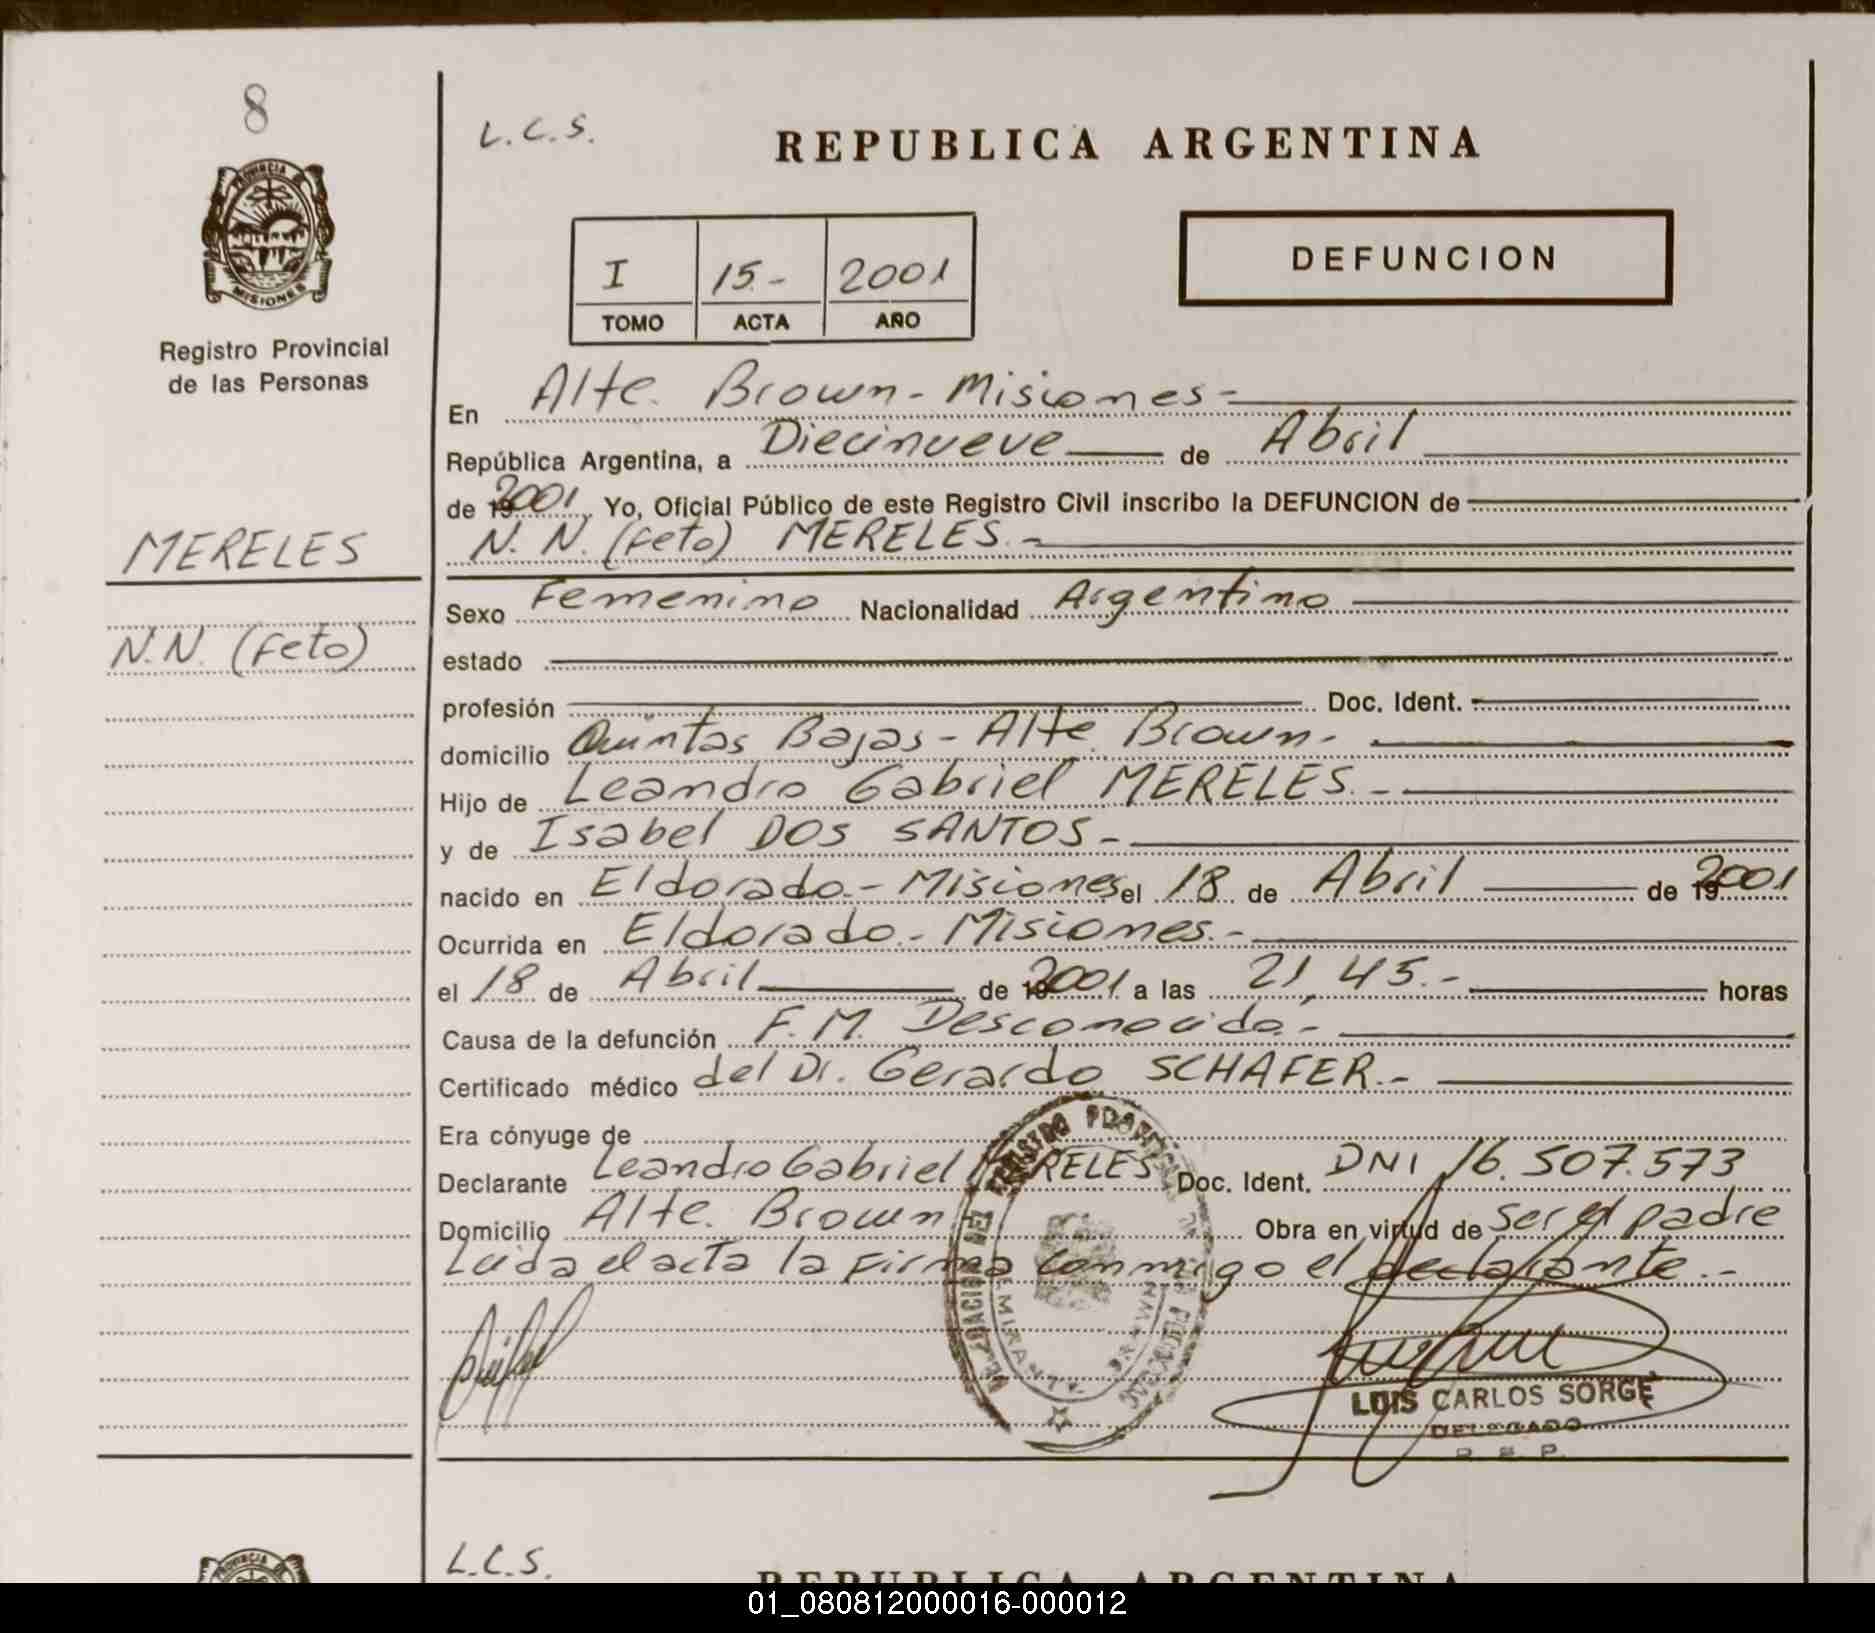 8
L.C.S.
REPUBLICA ARGENTINA
PROVINCIA DE
MISIONES
Registro Provincial
de las Personas
I 15.- 2001
TOMO ACTA AÑO
DEFUNCION
En Alte. Brown - Misiones -
República Argentina, a Diecinueve de Abril
de 2001 Yo, Oficial Público de este Registro Civil inscribo la DEFUNCION de
MERELES
N. N. (feto) MERELES.-
Sexo Femenino Nacionalidad Argentino
N.N. (feto)
estado
profesión Doc. Ident.
domicilio Quintas Bajas - Alte Brown.
Hijo de Leandro Gabriel MERELES.-
y de Isabel DOS SANTOS.-
nacido en Eldorado.- Misiones el 18 de Abril de 2001
Ocurrida en Eldorado.- Misiones.-
el 18 de Abril de 2001 a las 21,45.- horas
Causa de la defunción F.M. Desconocida.-
Certificado médico del Dr. Gerardo SCHAFER.-
Era cónyuge de
Declarante Leandro Gabriel MERELES Doc. Ident. DNI 16.507.573
Domicilio Alte. Brown Obra en virtud de ser el padre
Leida el acta la firma conmigo el declarante.-
LUIS CARLOS SORGE
DELEGADO
L.C.S.
REPUBLICA ARGENTINA
PROVINCIA
01_080812000016-000012